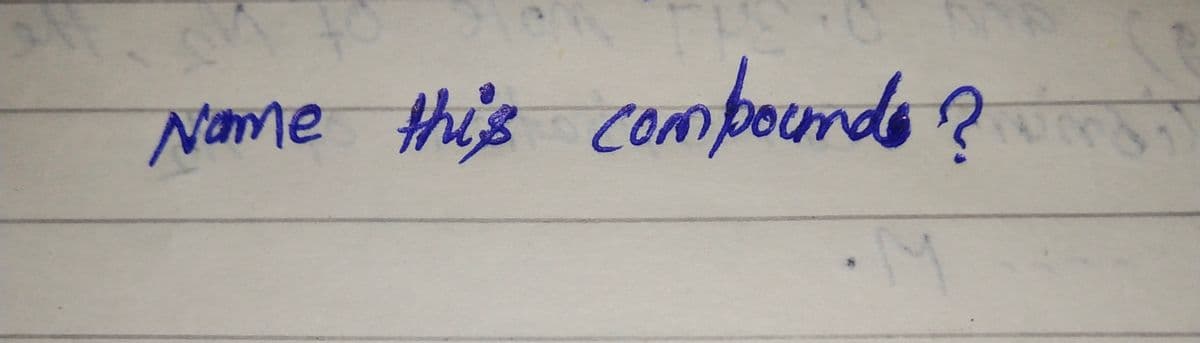 Name this compounds?